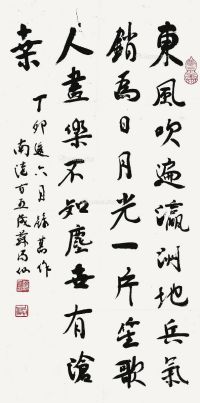 東風吹遍瀛洲地兵氣
銷為日月光一片笙歌
人盡樂不知塵世有滄
桑
丁卯閏六月錄舊作
南漪百五歲蘇局仙